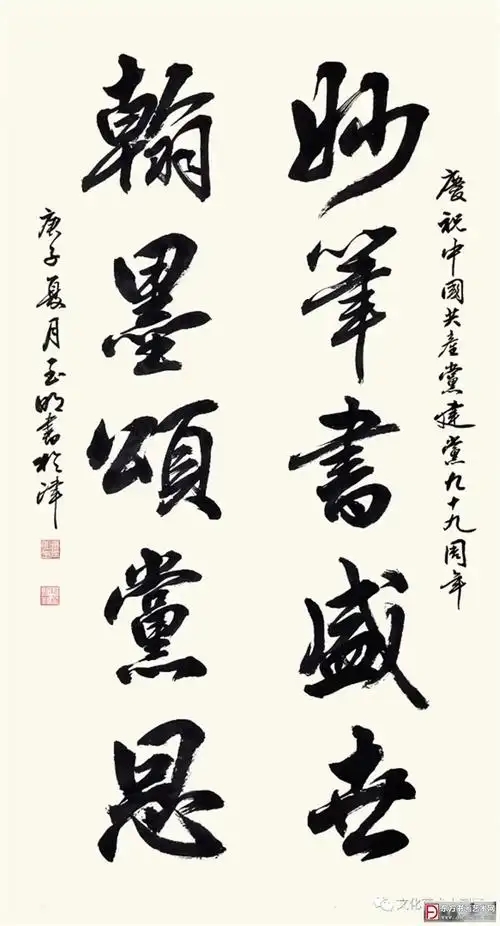 慶祝中國共產黨建黨九十九周年
妙筆書盛世
翰墨頌黨恩
庚子夏月玉明書於津
东方书画艺术网